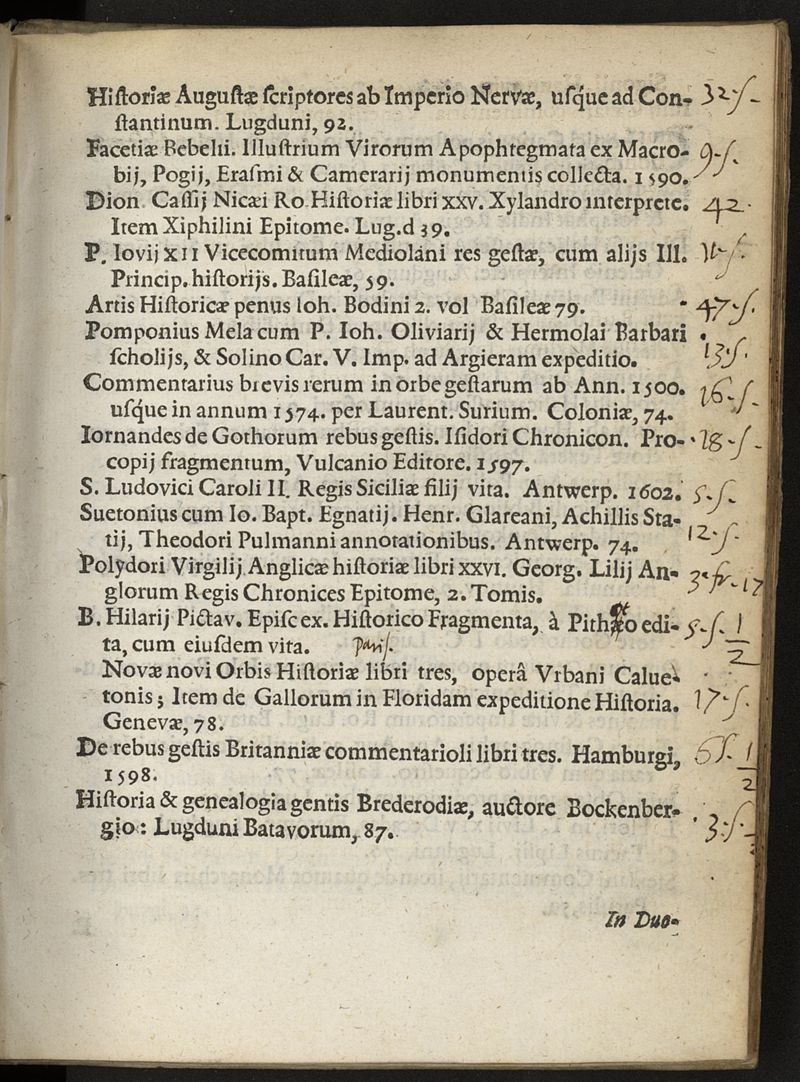 Hiſtoriæ Auguſtæ ſcriptores ab Imperio Nervæ, uſq́ue ad Con- 32-ſ-
ſtantinum. Lugduni, 92.
Facetiæ Bebelii. Illuſtrium Virorum Apophtegmata ex Macro- 9-ſ.
bij, Pogij, Eraſmi & Camerarij monumentis collecta. 1590.
Dion Caſſij Nicæi Ro. Hiſtoriæ libri xxv. Xylandro interprete. 42-
Item Xiphilini Epitome. Lug.d 39.
P. Iovij XII Vicecomitum Mediolani res geſtæ, cum alijs Ill.
Princip. hiſtorijs. Baſileæ, 59.
Artis Hiſtoricæ penus Ioh. Bodini 2. vol Baſileæ 79. 47-ſ.
Pomponius Mela cum P. Ioh. Oliviarij & Hermolai Barbari
ſcholijs, & Solino Car. V. Imp. ad Argieram expeditio. 13ſ.
Commentarius brevis rerum in orbe geſtarum ab Ann. 1500. 16-ſ-
uſq́ue in annum 1574. per Laurent. Surium. Coloniæ, 74.
Iornandes de Gothorum rebus geſtis. Iſidori Chronicon. Pro- 18-ſ-
copij fragmentum, Vulcanio Editore. 1597.
S. Ludovici Caroli II. Regis Siciliæ filij vita. Antwerp. 1602. 5-ſ.
Suetonius cum Io. Bapt. Egnatij. Henr. Glareani, Achillis Sta-
tij, Theodori Pulmanni annotationibus. Antwerp. 74. 12-ſ-
Polydori Virgilij Anglicæ hiſtoriæ libri xxvi. Georg. Lilij An-
glorum Regis Chronices Epitome, 2. Tomis.
B. Hilarij Pictav. Epiſc ex. Hiſtorico Fragmenta, à Pithæo edi- 5-ſ. 1/2
ta, cum eiuſdem vita. pariſ.
Novæ novi Orbis Hiſtoriæ libri tres, operâ Vrbani Calue-
tonis; Item de Gallorum in Floridam expeditione Hiſtoria. 17-ſ.
Genevæ, 78.
De rebus geſtis Britanniæ commentarioli libri tres. Hamburgi, 6ſ. 1/2
1598.
Hiſtoria & genealogia gentis Brederodiæ, auctore Bockenber-
gio: Lugduni Batavorum, 87. 3-ſ-
In Duo-